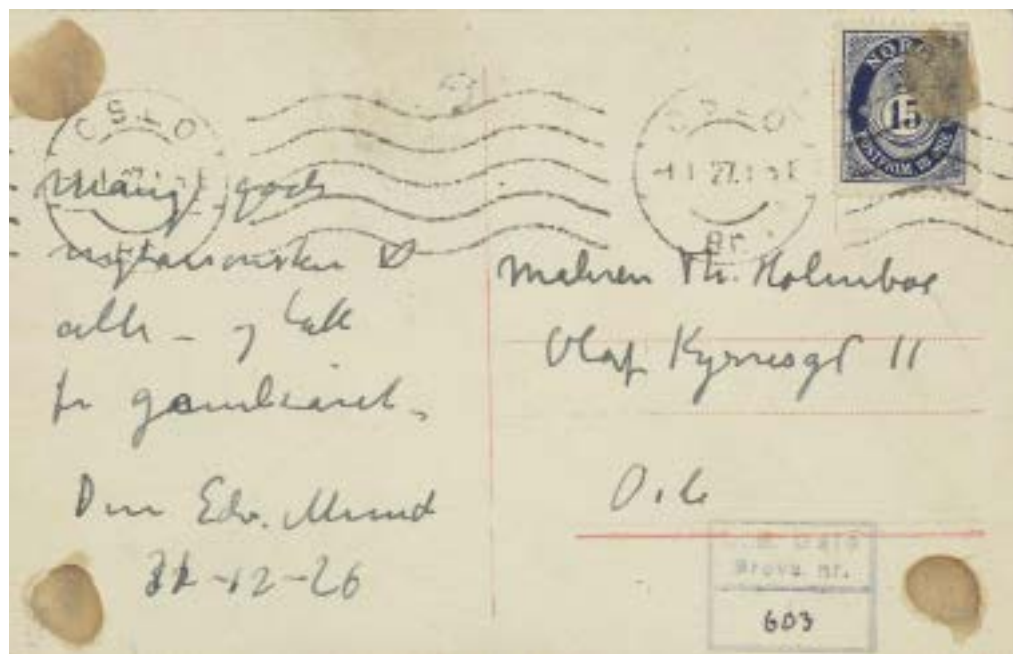 OSLO
OSLO
1 1 27
Br.
NORGE
15
Mange gode
nytaarsønsker til
alle – og takk
for gamleaaret.
Din Edv. Munch
31-12-26
Maleren Th. Holmboe
Olaf Kyrresgt 11
Oslo
Brevs nr.
603